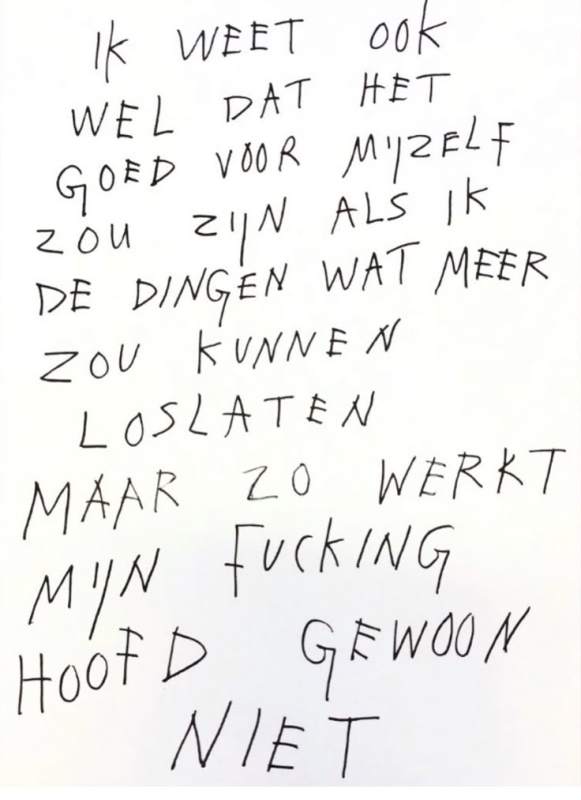 IK WEET OOK
WEL DAT HET
GOED VOOR MIJZELF
ZOU ZIJN ALS IK
DE DINGEN WAT MEER
ZOU KUNNEN
LOSLATEN
MAAR ZO WERKT
MIJN FUCKING
HOOFD GEWOON
NIET